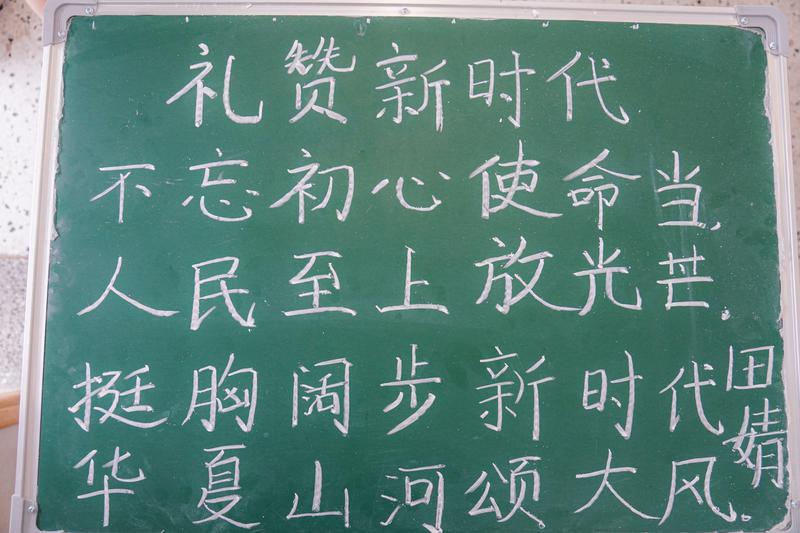 礼赞新时代
不忘初心使命当,
人民至上放光芒.
挺胸阔步新时代
华夏山河颂大风。
田婧